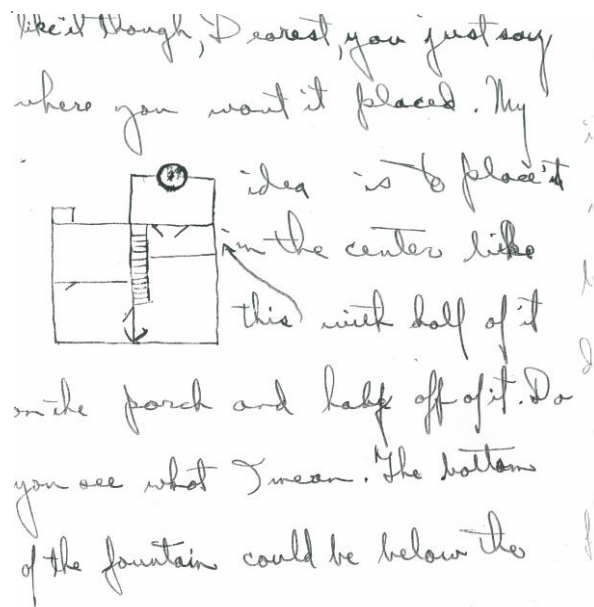 like it though, Dearest, you just say
where you want it placed. My
idea is to place it
in the center like
this with half of it
on the porch and half off of it. Do
you see what I mean. The bottom
of the fountain could be below the